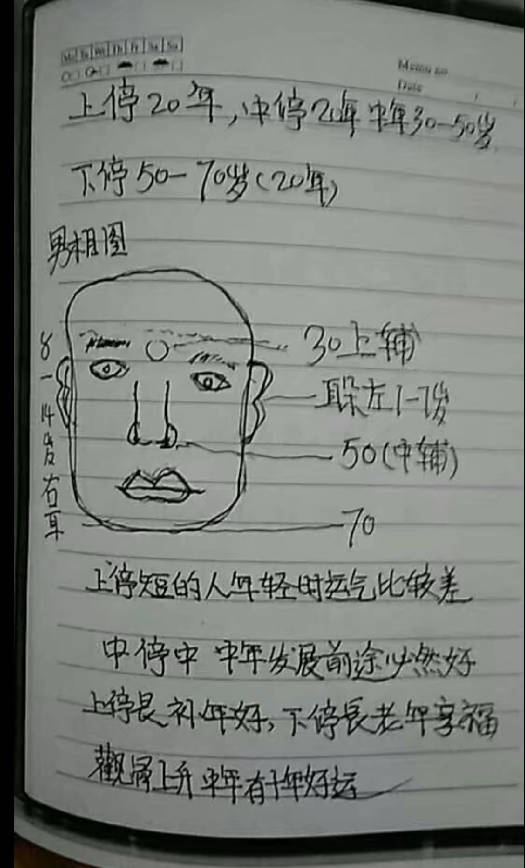 Mo Tu We Th Fr Sa Su
Memo no
Date
上停20年,中停20年 中年30-50岁
下停50-70岁(20年)
男相图
30上辅
8-14岁右耳
耳朵左1-7岁
50(中辅)
70
上停短的人年轻时运气比较差
中停中 中年发展前途必然好
上停長初年好,下停長老年享福
觀 上升 中年有十年好运